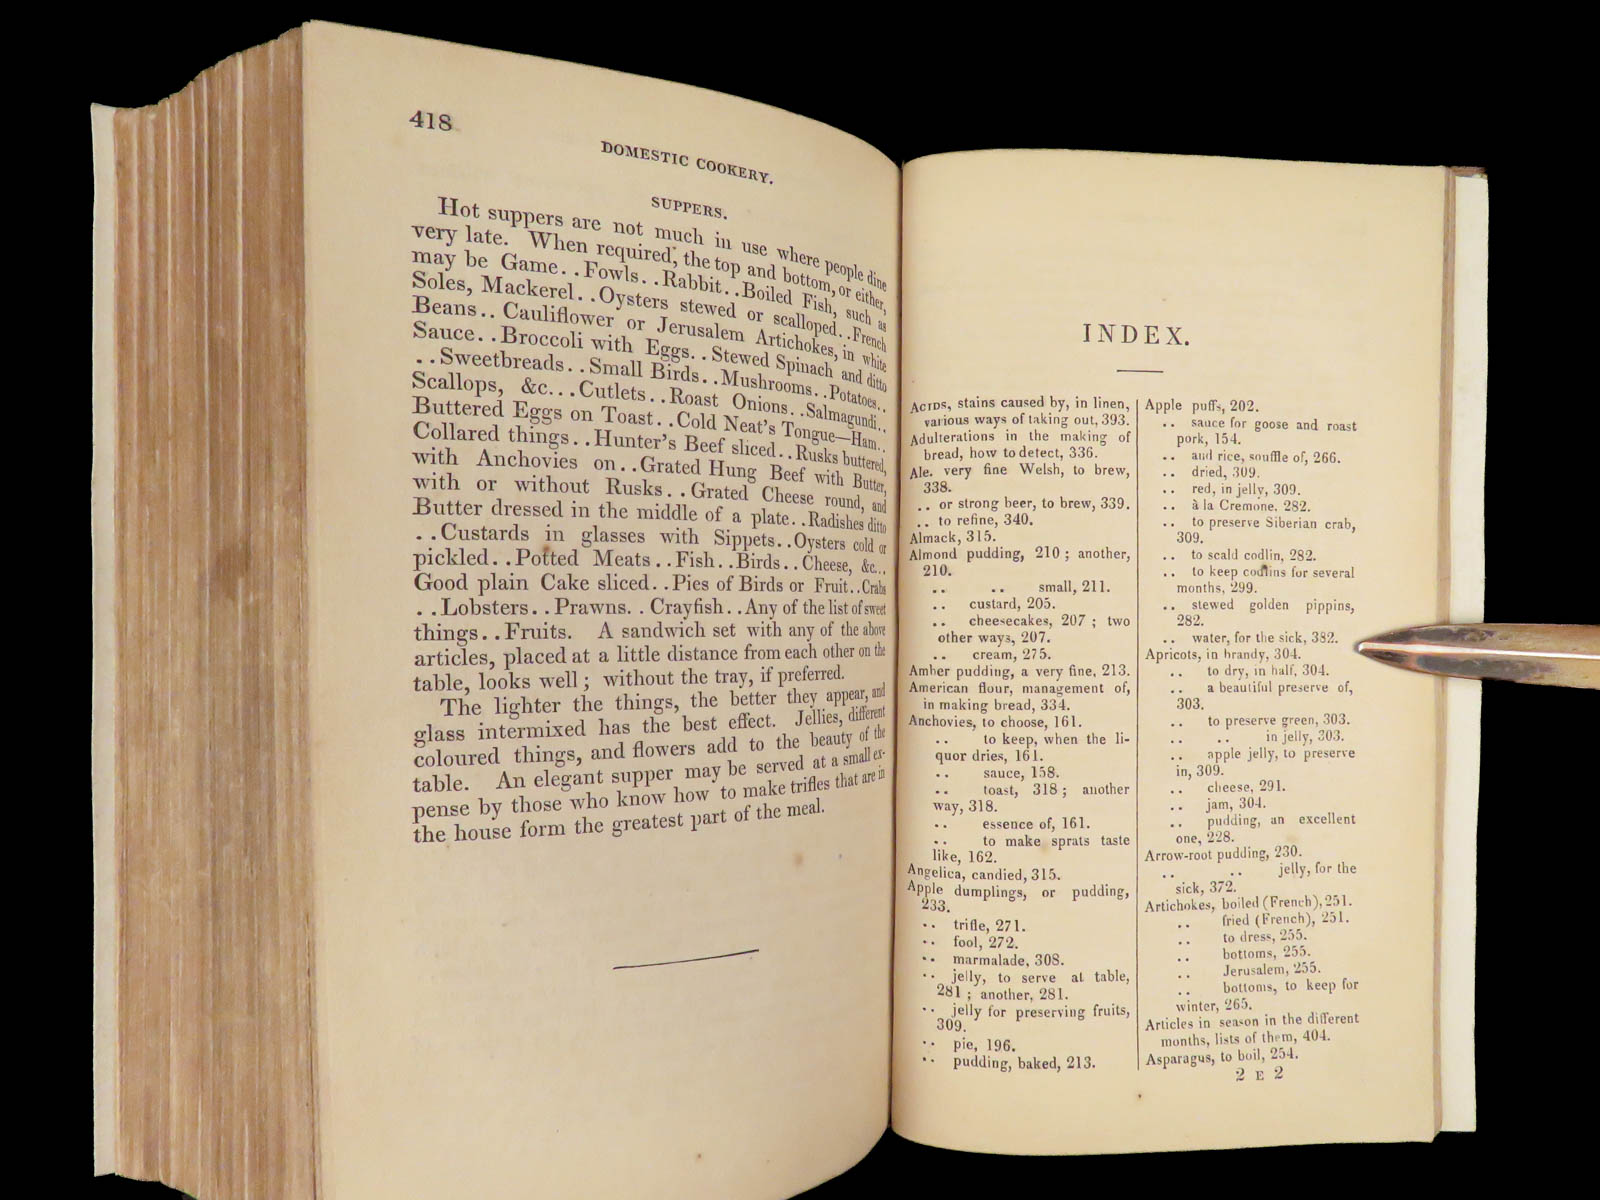 418
DOMESTIC COOKERY.
SUPPERS.
Hot suppers are not much in use where people dine
very late. When required, the top and bottom, or either,
may be Game. . Fowls. . Rabbit. . Boiled Fish, such as
Soles, Mackerel. . Oysters stewed or scalloped. . French
Beans. . Cauliflower or Jerusalem Artichokes, in white
Sauce. . Broccoli with Eggs. . Stewed Spinach and ditto
. . Sweetbreads. . Small Birds. . Mushrooms. . Potatoes. .
Scallops, &c. . . Cutlets. . Roast Onions. . Salmagundi. .
Buttered Eggs on Toast. . Cold Neat's Tongue—Ham. .
Collared things. . Hunter's Beef sliced. . Rusks buttered,
with Anchovies on. . Grated Hung Beef with Butter,
with or without Rusks. . Grated Cheese round, and
Butter dressed in the middle of a plate. . Radishes ditto
. . Custards in glasses with Sippets. . Oysters cold or
pickled. . Potted Meats. . Fish. . Birds. . Cheese, &c. . .
Good plain Cake sliced. . Pies of Birds or Fruit. . Crabs
. . Lobsters. . Prawns. . Crayfish. . Any of the list of sweet
things. . Fruits. A sandwich set with any of the above
articles, placed at a little distance from each other on the
table, looks well; without the tray, if preferred.
The lighter the things, the better they appear, and
glass intermixed has the best effect. Jellies, different
coloured things, and flowers add to the beauty of the
table. An elegant supper may be served at a small ex-
pense by those who know how to make trifles that are in
the house form the greatest part of the meal.
INDEX.
ACIDS, stains caused by, in linen,
various ways of taking out, 393.
Adulterations in the making of
bread, how to detect, 336.
Ale. very fine Welsh, to brew,
338.
. . or strong beer, to brew, 339.
. . to refine, 340.
Almack, 315.
Almond pudding, 210; another,
210.
. . . . small, 211.
. . custard, 205.
. . cheesecakes, 207; two
other ways, 207.
. . cream, 275.
Amber pudding, a very fine, 213.
American flour, management of,
in making bread, 334.
Anchovies, to choose, 161.
. . to keep, when the li-
quor dries, 161.
. . sauce, 158.
. . toast, 318; another
way, 318.
. . essence of, 161.
. . to make sprats taste
like, 162.
Angelica, candied, 315.
Apple dumplings, or pudding,
233.
. . trifle, 271.
. . fool, 272.
. . marmalade, 308.
. . jelly, to serve at table,
281; another, 281.
. . jelly for preserving fruits,
309.
. . pie, 196.
. . pudding, baked, 213.
Apple puffs, 202.
. . sauce for goose and roast
pork, 154.
. . and rice, souffle of, 266.
. . dried, 309.
. . red, in jelly, 309.
. . à la Cremone, 282.
. . to preserve Siberian crab,
309.
. . to scald codlin, 282.
. . to keep codlins for several
months, 299.
. . stewed golden pippins,
282.
. . water, for the sick, 382.
Apricots, in brandy, 304.
. . to dry, in half, 304.
. . a beautiful preserve of,
303.
. . to preserve green, 303.
. . . . in jelly, 303.
. . apple jelly, to preserve
in, 309.
. . cheese, 291.
. . jam, 304.
. . pudding, an excellent
one, 228.
Arrow-root pudding, 230.
. . . . jelly, for the
sick, 372.
Artichokes, boiled (French), 251.
. . fried (French), 251.
. . to dress, 255.
. . bottoms, 255.
. . Jerusalem, 255.
. . bottoms, to keep for
winter, 265.
Articles in season in the different
months, lists of them, 404.
Asparagus, to boil, 254.
2 E 2